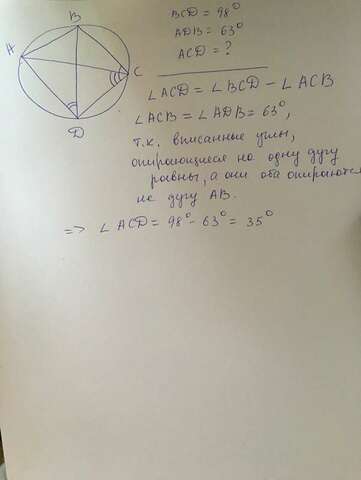 B
BCD = 98°
ADB = 63°
A
ACD = ?
C
∠ACD = ∠BCD - ∠ACB
D
∠ACB = ∠ADB = 63°,
т.к. вписанные углы,
опирающиеся на одну дугу
равны, а они оба опираются
на дугу AB.
=> ∠ACD = 98° - 63° = 35°